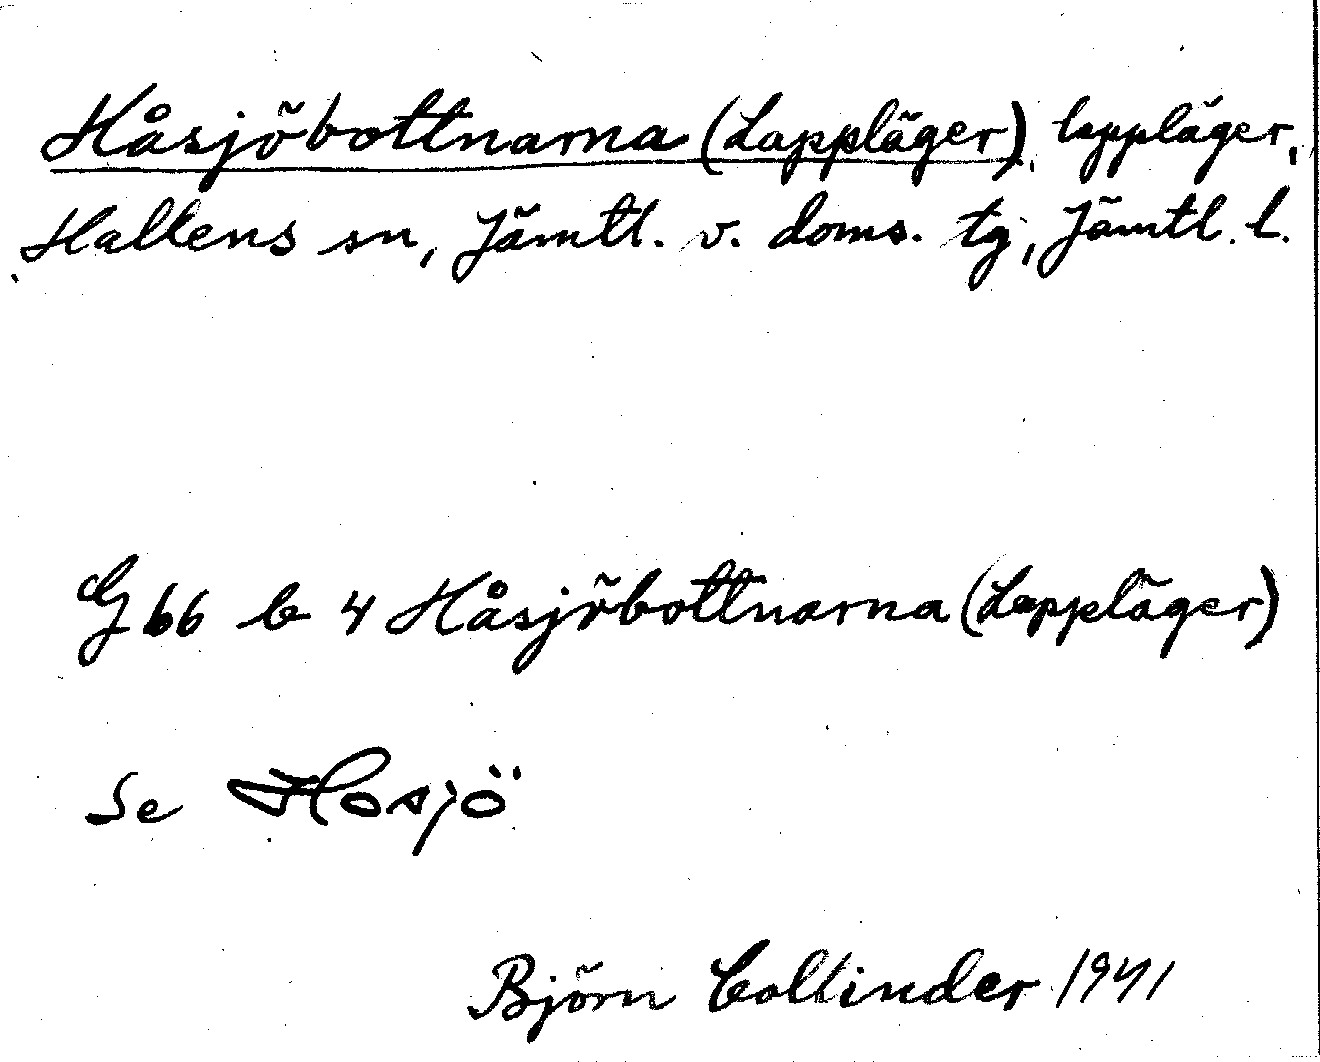 Håsjöbottnarna (Lappläger), lappläger,
Hallens sn, Jämtl. v. doms. tg, Jämtl. l.
G 66 b 4 Håsjöbottnarna (Lappläger)
Se Hosjö
Björn Collinder 1941